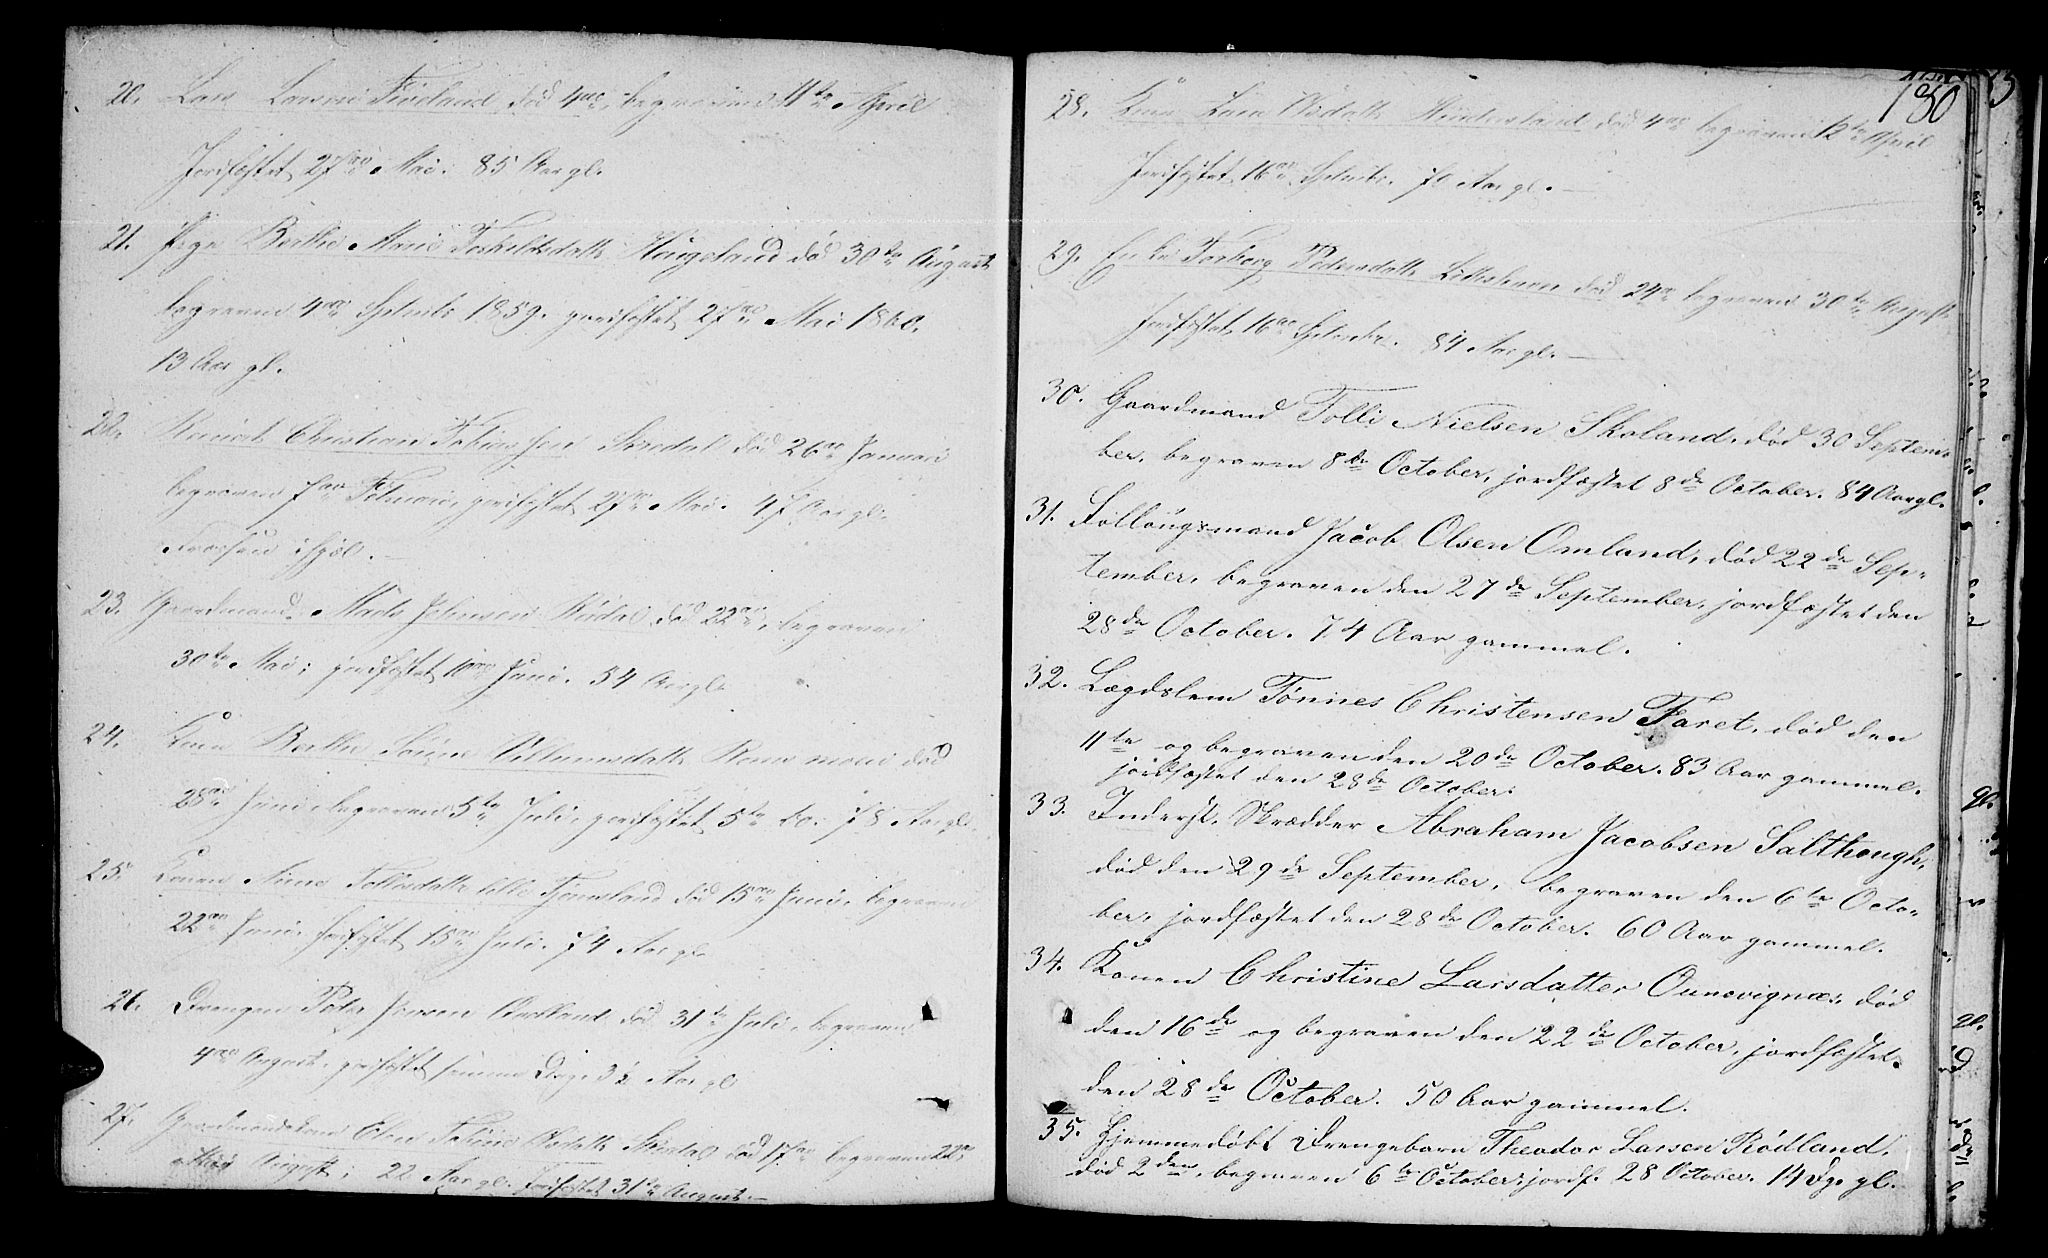 20. Lars Larsen død 4de, begraven 11te April
Jordfæstet 27de Mai. 85 Aar gl.
21. Pige Berthe Marie Torkildsdatter Haugeland død 30te August
begraven 4de Septembr 1859. jordfæstet 27de Mai 1860.
13 Aar gl.
22. Christian Tobiassen død 26de Januari
begraven Februari, jordfæstet 27de Mai. 47 Aar gl.
Frossen ihjel.
23. Gaardmand Mads Johnsen død 22de, begraven
30te Mai; jordfæstet 10de Juni. 54 Aar gl.
24. Berthe Villumsdatter død
28de Juni, begraven 5te Juli, jordfæstet 5te do. 78 Aar gl.
25. Konen Anne Tollisdatter død 15de Juni, begraven
22de Juni. Jordfæstet 15de Juli. 74 Aar gl.
26. Drengen Peder Jensen død 31te Juli, begraven
4de August, jordfæstet samme Dag. 3½ Aar gl.
27. Gaardmandskone død 17de begraven 22de
August; 22 Aar gl. Jordfæstet 31te August.
180
28. død 4de begraven 12te April
Jordfæstet 16de Septembr. 70 Aar gl.
29. Enke Torborg Pedersdatter død 24de begraven 30te August
Jordfæstet 16de Septembr. 84 Aar gl.
30. Gaardmand Tolli Nielsen Skoland, død 30 Septem-
ber, begraven 8de October, jordfæstet 8de October. 84 Aar gl.
31. Follougsmand Jacob Olsen Omland, død 22de Sep-
tember, begraven den 27de September, jordfæstet den
28de October. 74 Aar gammel.
32. Lægdslem Tønnes Christensen Faret, død den
11te og begraven den 20de October. 83 Aar gammel.
jordfæstet den 28de October.
33. Inderst, Skrædder Abraham Jacobsen Salthough,
død den 29de September, begraven den 6te Octo-
ber, jordfæstet den 28de October. 60 Aar gammel.
34. Konen Christine Larsdatter Ounevignæs, død
den 16de og begraven den 22de October, jordfæstet
den 28de October. 50 Aar gammel.
35. Hjemmedøbt Drengebarn Theodor Larsen Rødland,
død 2den, begraven 6te October, jordf. 28 October. 14 Dge gl.